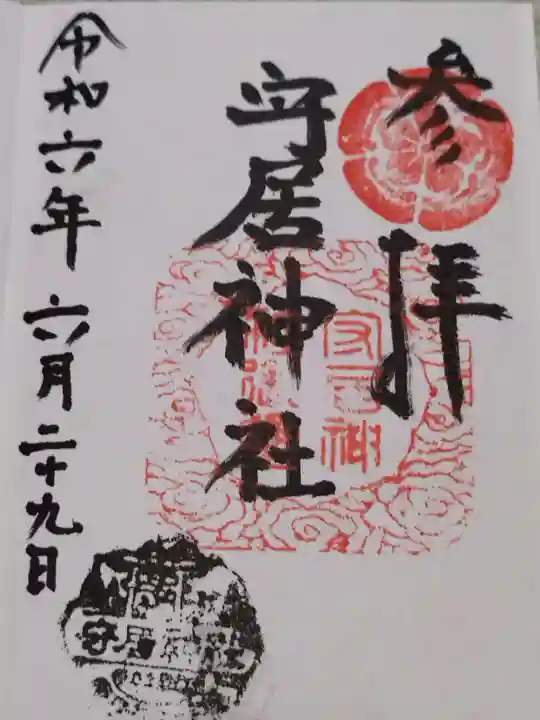 参拝
守居神社
令和六年 六月二十九日
守居神社